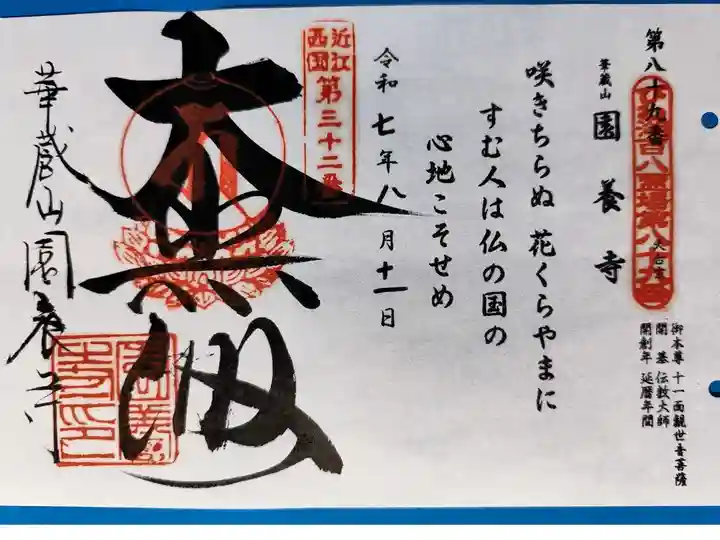 第八十九番
華蔵山
園養寺
天台宗
御本尊 十一面観世音菩薩
開基 伝教大師
開創年 延暦年間
咲きちらぬ 花くらやまに
すむ人は仏の国の
心地こそせめ
令和七年八月十一日
近江
西国
第三十二番
華蔵山園養寺